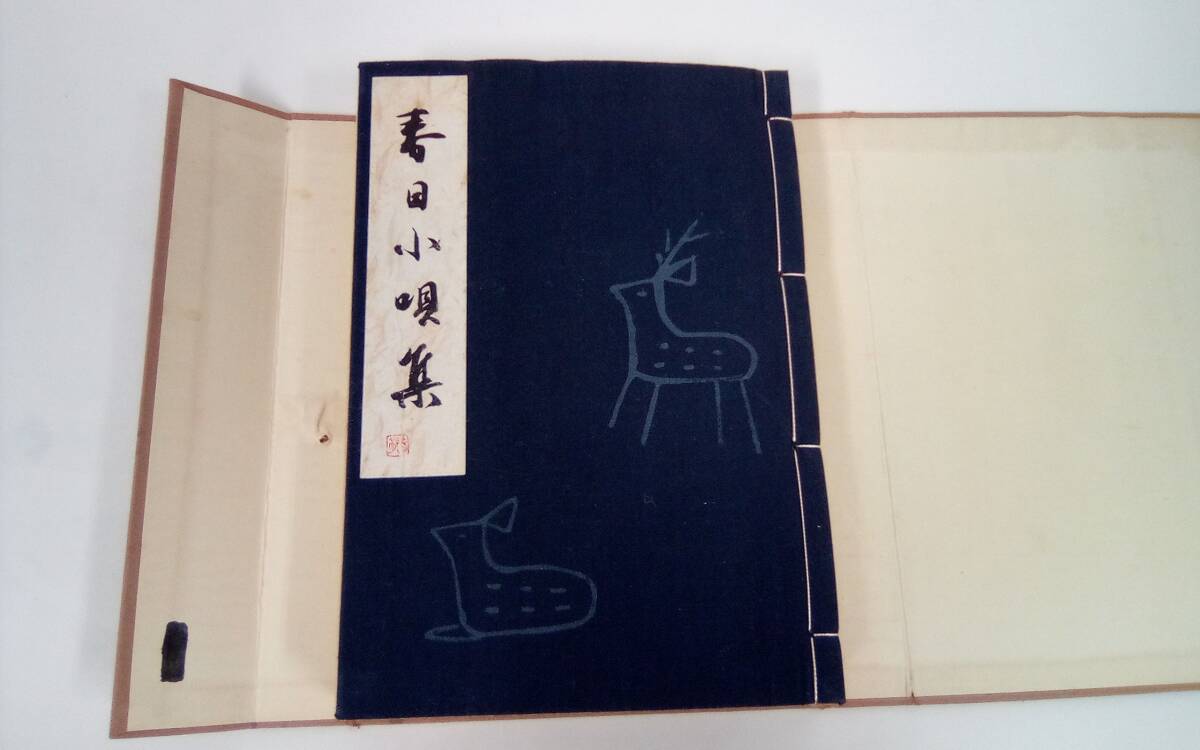 春日小唄集